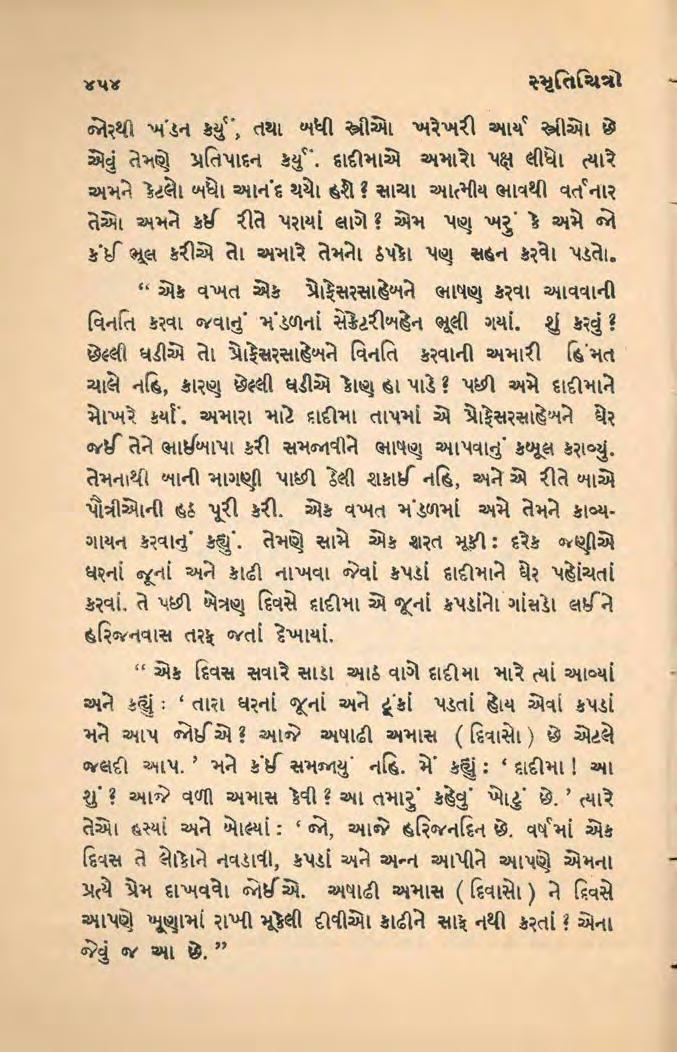 ૪૫૪ સ્મૃતિચિત્રો
જોરથી ખંડન કર્યું, તથા બધી સ્ત્રીઓ ખરેખરી આર્ય સ્ત્રીઓ છે
એવું તેમણે પ્રતિપાદન કર્યું. દાદીમાએ અમારો પક્ષ લીધો ત્યારે
અમને કેટલો બધો આનંદ થયો હશે? સાચા આત્મીય ભાવથી વર્તનાર
તેઓ અમને કઈ રીતે પરાયાં લાગે? એમ પણ ખરું કે અમે જો
કંઈ ભૂલ કરીએ તો અમારે તેમનો ઠપકો પણ સહન કરવો પડતો.
“ એક વખત એક પ્રોફેસરસાહેબને ભાષણ કરવા આવવાની
વિનતિ કરવા જવાનું મંડળનાં સેક્રેટરીબહેન ભૂલી ગયાં. શું કરવું?
છેલ્લી ઘડીએ તો પ્રોફેસરસાહેબને વિનતિ કરવાની અમારી હિંમત
ચાલે નહિ, કારણ છેલ્લી ઘડીએ કોણ હા પાડે? પછી અમે દાદીમાને
મોખરે કર્યાં. અમારા માટે દાદીમા તાપમાં એ પ્રોફેસરસાહેબને ઘેર
જઈ તેને ભાઈબાપા કરી સમજાવીને ભાષણ આપવાનું કબૂલ કરાવ્યું.
તેમનાથી બાની માગણી પાછી ઠેલી શકાઈ નહિ, અને એ રીતે બાએ
પૌત્રીઓની હઠ પૂરી કરી. એક વખત મંડળમાં અમે તેમને કાવ્ય-
ગાયન કરવાનું કહ્યું. તેમણે સામે એક શરત મૂકી: દરેક જણીએ
ઘરનાં જૂનાં અને કાઢી નાખવા જેવાં કપડાં દાદીમાને ઘેર પહોંચતાં
કરવાં. તે પછી બેત્રણ દિવસે દાદીમા એ જૂનાં કપડાંનો ગાંસડો લઈને
હરિજનવાસ તરફ જતાં દેખાયાં.
“ એક દિવસ સવારે સાડા આઠ વાગે દાદીમા મારે ત્યાં આવ્યાં
અને કહ્યું: ‘ તારા ઘરનાં જૂનાં અને ટૂંકાં પડતાં હોય એવાં કપડાં
મને આપ જોઈએ? આજે અષાઢી અમાસ ( દિવાસો ) છે એટલે
જલદી આપ. ’ મને કંઈ સમજાયું નહિ. મેં કહ્યું: ‘ દાદીમા! આ
શું? આજે વળી અમાસ કેવી? આ તમારું કહેવું ખોટું છે. ’ ત્યારે
તેઓ હસ્યાં અને બોલ્યાં: ‘ જો, આજે હરિજનદિન છે. વર્ષમાં એક
દિવસ તે લોકોને નવડાવી, કપડાં અને અન્ન આપીને આપણે એમના
પ્રત્યે પ્રેમ દાખવવો જોઈએ. અષાઢી અમાસ ( દિવાસો ) ને દિવસે
આપણે ખૂણામાં રાખી મૂકેલી દીવીઓ કાઢીને સાફ નથી કરતાં? એના
જેવું જ આ છે. ”